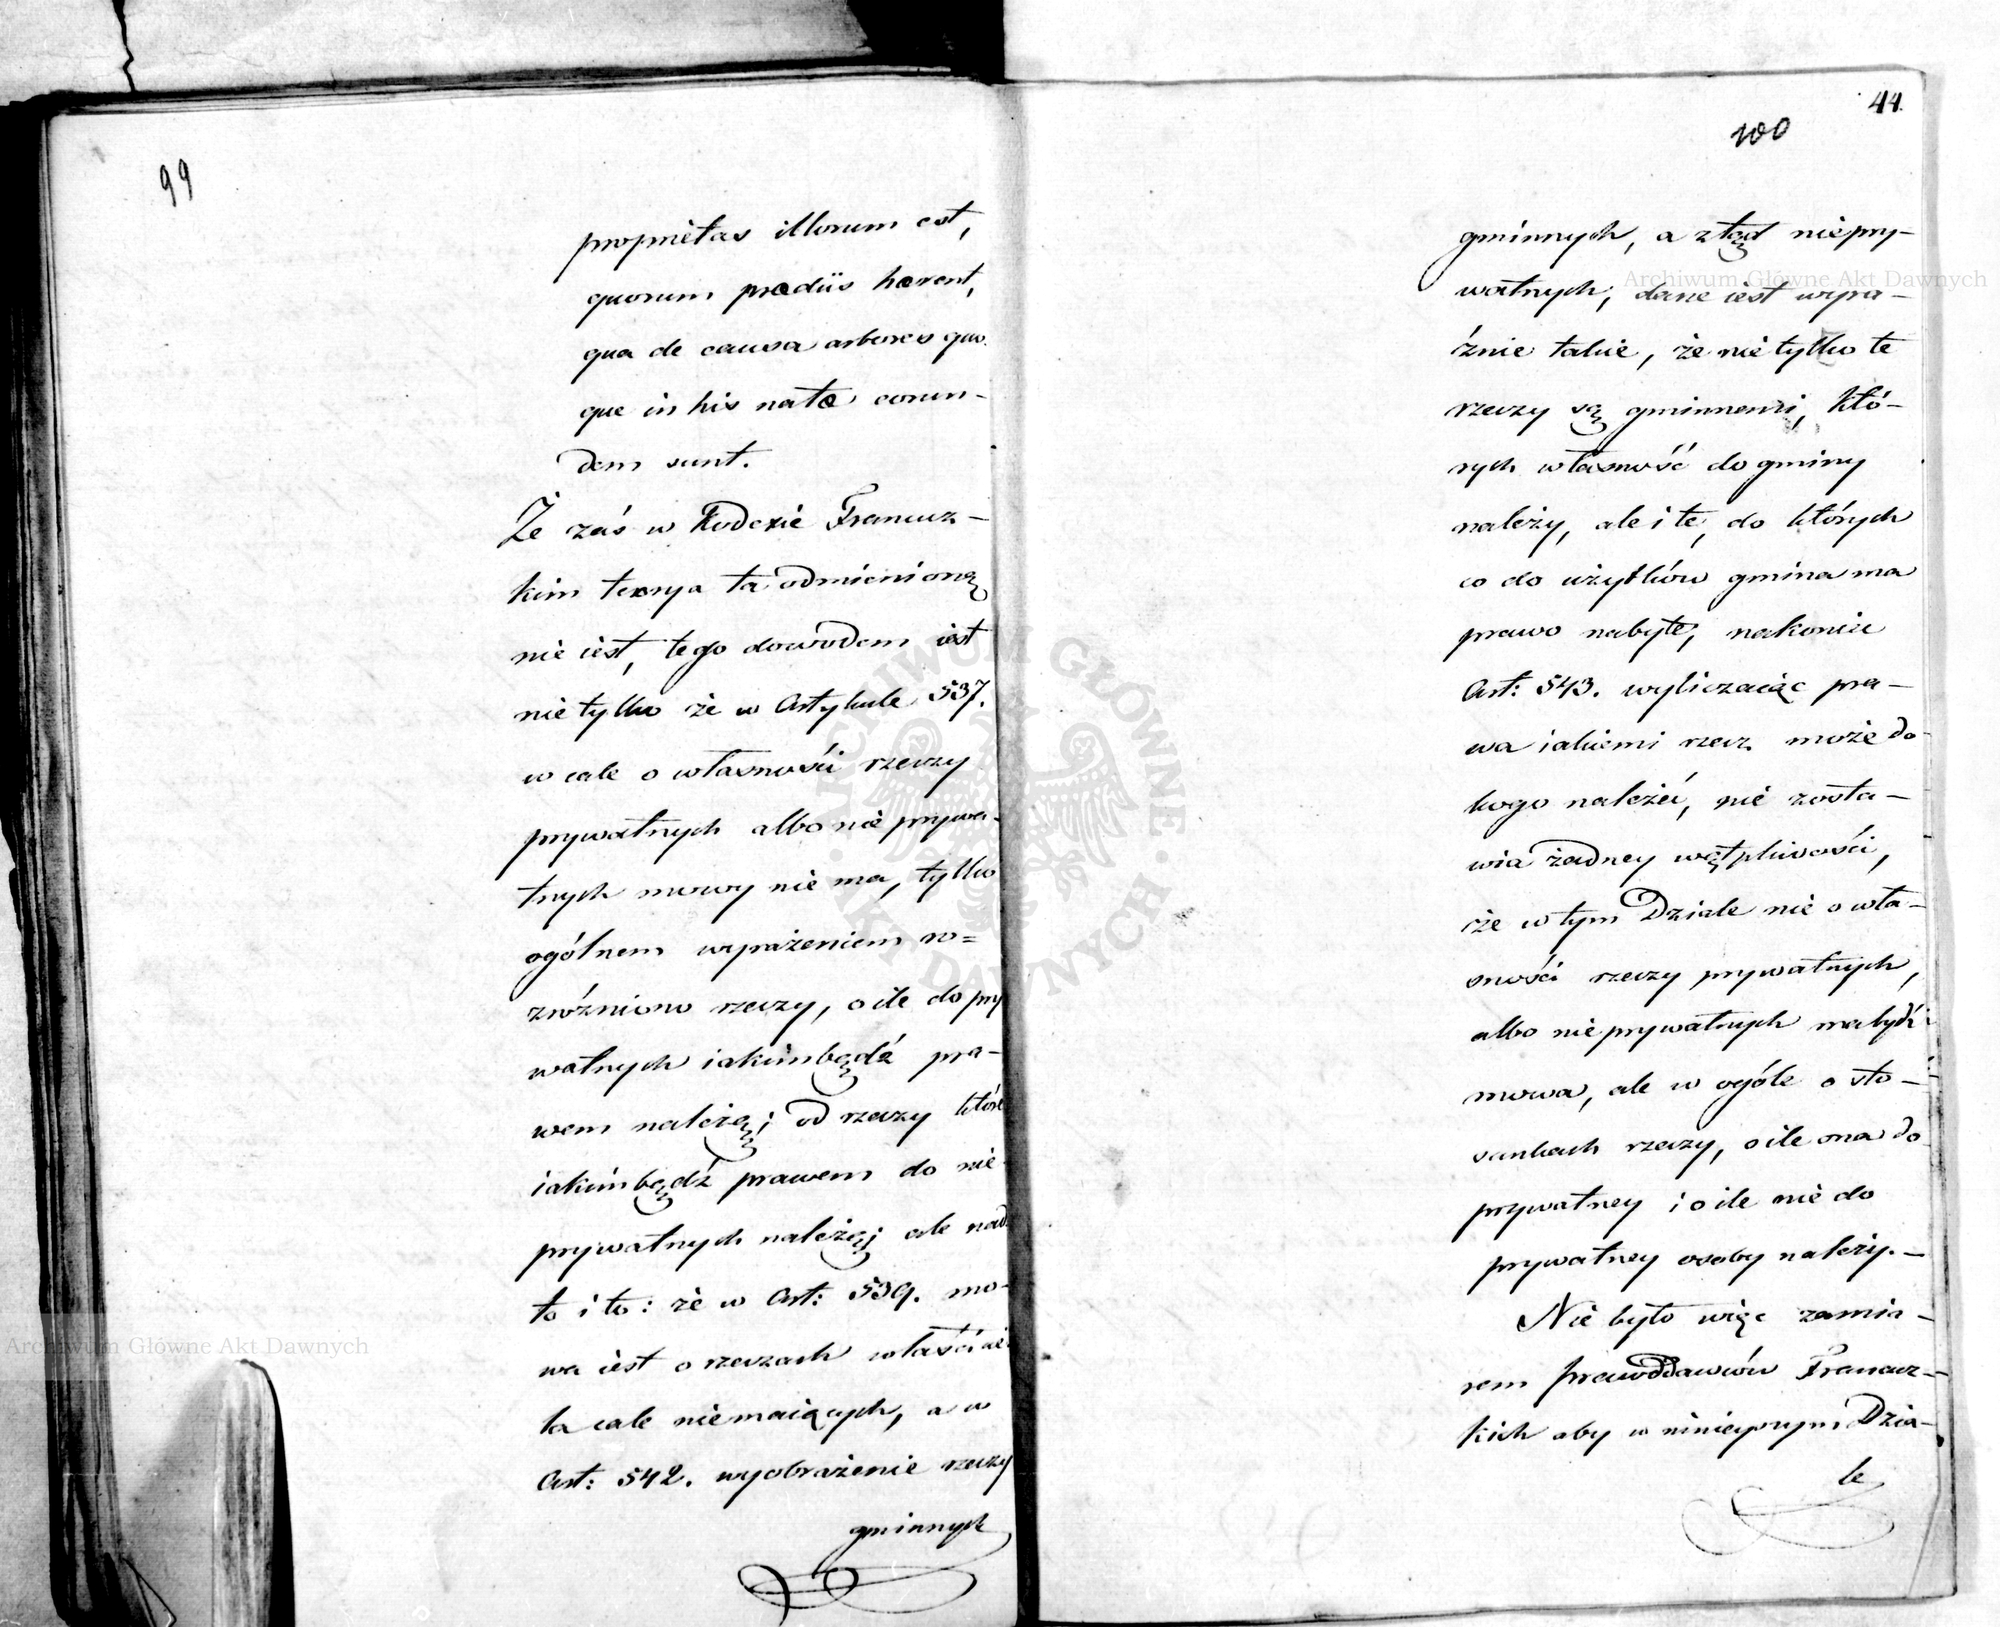 99
proprietas illorum est,
quorum prædiis hærent,
qua de causa arbores quo
que in his natæ eorun-
dem sunt.
Że zaś w Kodexie Francuz-
kim teorya ta odmienioną
nie iest, tego dowodem iest
nie tylko że w Artykule 537.
wcale o własności rzeczy
prywatnych albo nie prywa-
tnych mowy nie ma, tylko
ogólnem wyrażeniem ro=
zróżniono rzeczy, o ile do pry
watnych iakimbądź pra-
wem należą; od rzeczy które
iakimbądź prawem do nie-
prywatnych należą; ale nad
to i to: że w Art: 539. mo-
wa iest o rzeczach właścicie-
la cale niemaiących, a w
Art: 542. wyobrażenie rzeczy
gminnych
44.
100
gminnych, a ztąd niepry-
watnych, dane iest wyra-
źnie takie, że nie tylko te
rzeczy są gminnemi, któ-
rych własność do gminy
należy, ale i te, do których
co do użytków gmina ma
prawo nabyte, nakoniec
Art: 543. wyliczaiąc pra-
wa iakiemi rzecz może do
kogo należeć, nie zosta-
wia żadney wątpliwości,
że w tym Dziale nie o wła-
sności rzeczy prywatnych,
albo nieprywatnych ma bydź
mowa, ale w ogóle o sto-
sunkach rzeczy, o ile ona do
prywatney i o ile nie do
prywatney osoby należy.-
Nie było więc zamia-
rem Prawodawców Francuz-
kich aby w ninieyszym Dzia-
le
Archiwum Główne Akt Dawnych
Archiwum Główne Akt Dawnych
ARCHIWUM GŁÓWNE · AKT DAWNYCH ·